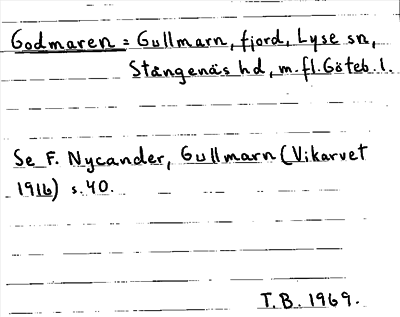 Godmaren = Gullmarn, fjord, Lyse sn,
Stångenäs hd, m.fl. Göteb. l.
Se F. Nycander, Gullmarn (Vikarvet
1916) s. 40.
T.B. 1969.